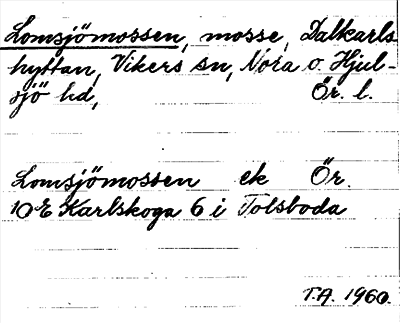 Lomsjömossen, mosse, Dalkarls
hyttan, Vikers sn, Nora o. Hjul-
sjö hd, Ör. l.
Lomsjömossen ek Ör.
10E Karlskoga 6 i Tolsboda
T.A. 1960.